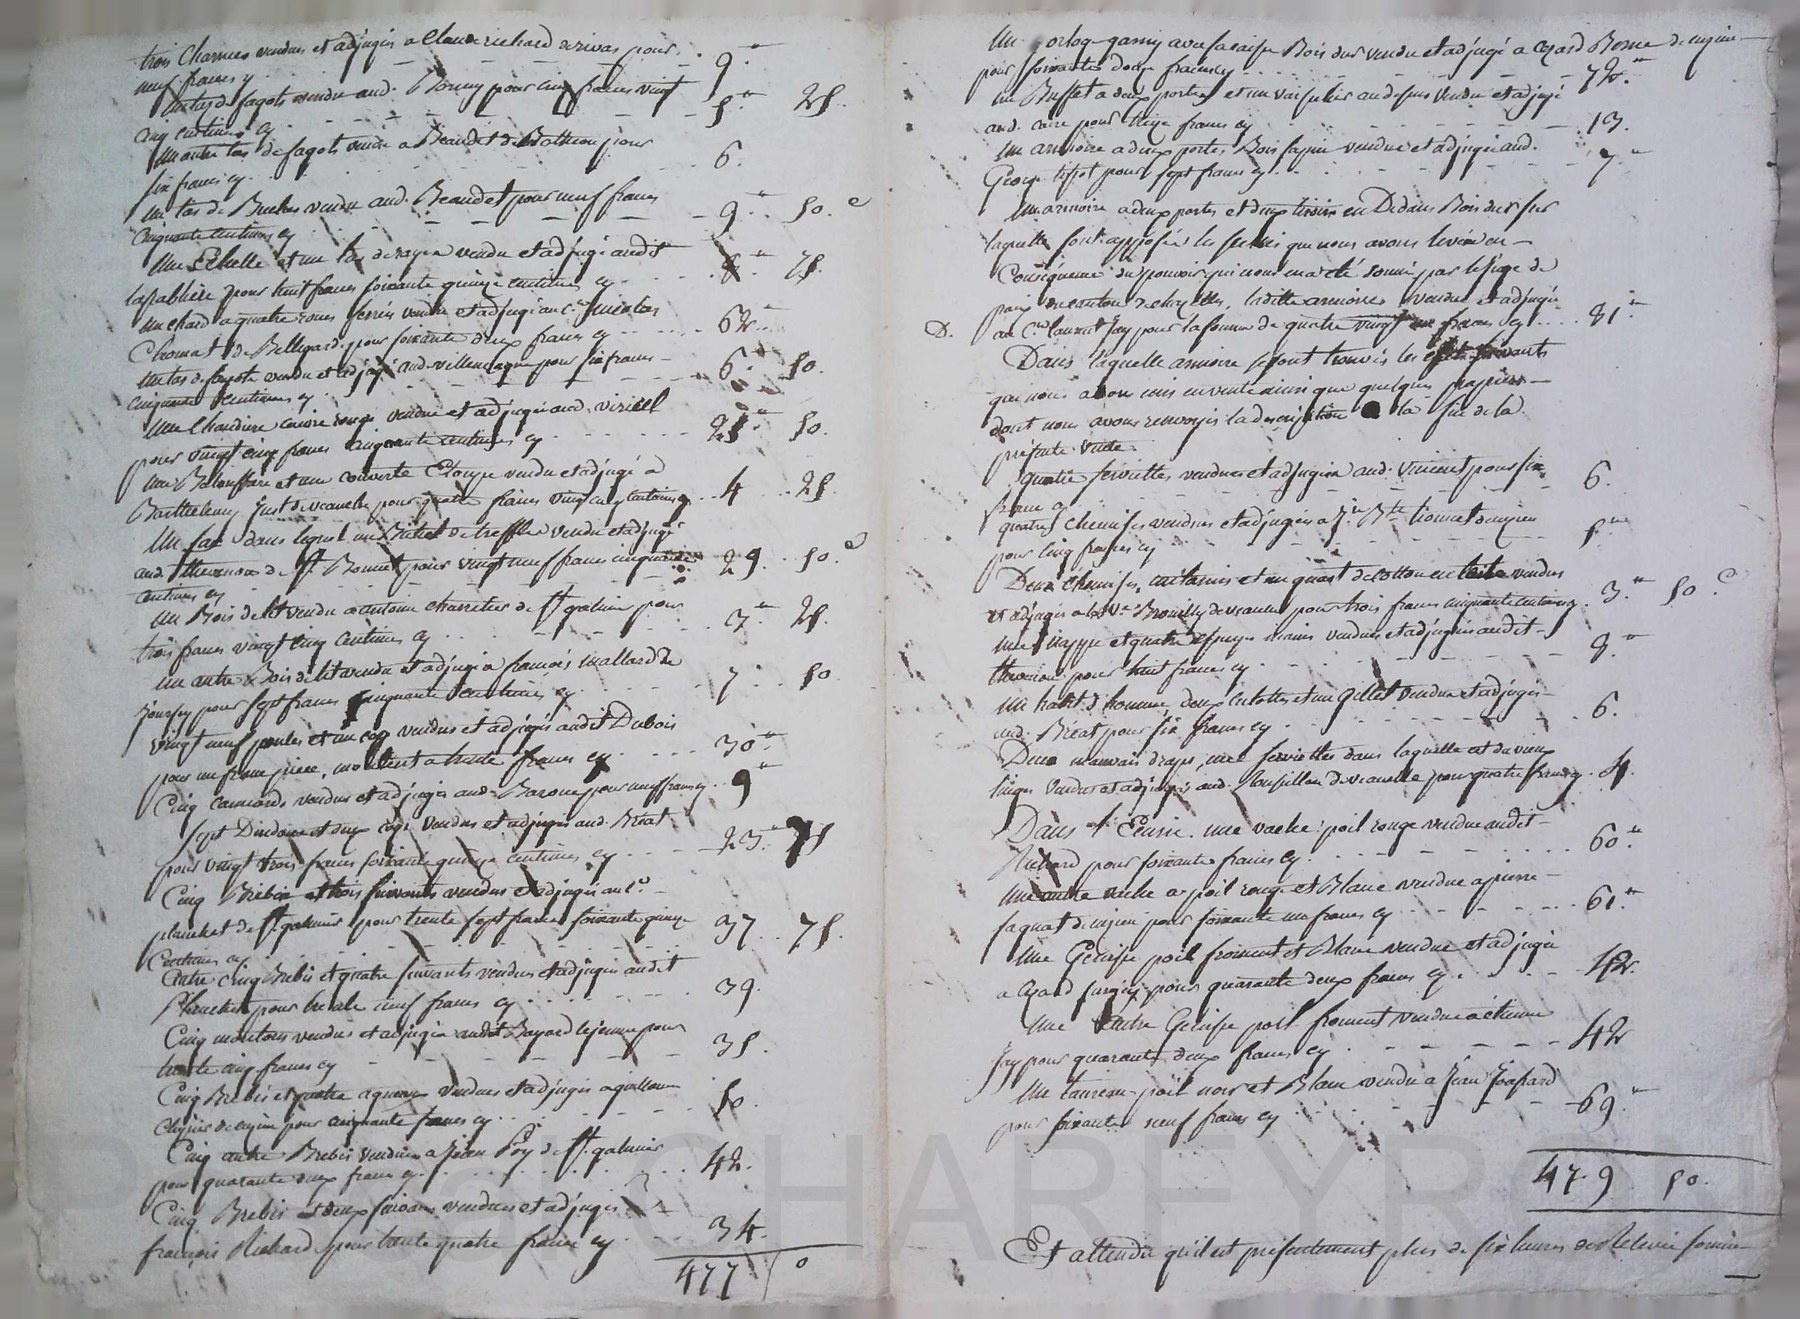 trois Charrues vendues et adjugées a Claude richard de rivas pour 9"
neuf francs cy
un tas de fagots vendu aud. Bonny pour cinq francs vingt 5" 25.
cinq centimes cy
un autre tas de fagots vendu a Beaudet de Bothéon pour 6.
six francs cy
un tas de Buches vendu aud. Beaudet pour neuf francs 9" 50. c
cinquante centimes cy
une Echelle et un vendu et adjugé audit 8" 75.
lapabliere pour huit francs soixante quinze centimes cy
un chard a quatre roues ferrées vendu et adjugé au c.
Chomat de Bellegarde pour soixante deux francs cy 62"
un tas de fagots vendu et adjugé aud. pour six francs 6" 50.
cinquante centimes cy
une Chaudiere cuivre rouge vendue et adjugée aud. viricel
pour vingt cinq francs cinquante centimes cy 25" 50.
une et une couverte vendue et adjugé a
Barthelemy Just de veauche pour quatre francs vingt cinq centimes cy 4 25.
Un sac dans lequel un de treffle vendu et adjugé
aud. thevenon de St. Bonnet pour vingt neuf francs cinquante 29. 50. c
centimes cy
un Bois de lit vendu a antoine charretier de St galmier pour
trois francs vingt cinq centimes cy 3" 25.
un autre Bois de lit vendu et adjugé a francois mallard de
pour sept francs cinquante centimes cy 7" 50
vingt neuf poules et un coq vendus et adjugés audit Dubois
pour un franc piece, montent a trente francs cy 30"
Cinq canards vendus et adjugés aud. Baroue pour neuf francs cy 9"
Sept Dindons et deux coqs vendus et adjugés aud. Bréat
pour vingt trois francs soixante quinze centimes cy 23" 75
Cinq Brebis et trois suivants vendus et adjugés au C.
planchet de St. galmier pour trente sept francs soixante quinze 37 75.
Centimes cy
Autre Cinq Brebis et quatre suivants vendus et adjugés audit
Planchet pour trente neuf francs cy 39.
Cinq moutons vendus et adjugés audit Bayard le jeune pour
trente cinq francs cy 35.
Cinq Brebis et quatre agneaux vendus et adjugés a guillaume
de cuzieu pour cinquante francs cy 50.
Cinq autre Brebis vendues a Jean Poy de St. galmier
pour quarante deux francs cy 42.
Cinq Brebis et deux suivans vendues et adjugés a
francois Richard pour trente quatre francs cy 34.
477 50
Un orloge garny avec sa caisse Bois dur vendu et adjugé a Cyard Borne de cuzieu
pour soixante douze francs cy 72"
un Buffet a deux portes et un vaisselier au dessus vendu et adjugé
aud. pour treize francs cy 13.
Un armoire a deux portes Bois sapin vendue et adjugée aud.
George tissot pour sept francs cy 7"
Un armoire a deux portes et deux tiroirs en Dedans Bois dur sur
laquelle sont apposés les scellés que nous avons levés en
Conséquence du pouvoir qui nous en a été donné par le Juge de
paix du canton de Chazelles, ladite armoire vendue et adjugée
D. au C. laurent Jay pour la somme de quatre vingt un francs cy 81"
Dans laquelle armoire se sont trouvés les effets suivants
que nous avons mis en vente ainsi que quelques papiers
dont nous avons renvoyés la description a la fin de la
présente vente.
quatre serviettes vendues et adjugées aud. Vincent pour six 6.
francs cy
quatre Chemises vendues et adjugées a Jn. Bte. de cuzieu
pour cinq francs cy 5"
Deux chemises, et un quart de Cotton en toile vendus
et adjugés a la Ve. Brouilly de veauche pour trois francs cinquante centimes cy 3" 50 c
une nappe et quatre essuye mains vendus et adjugés audit
thevenon pour huit francs cy 8"
un habit d'homme, deux culottes et un gillet vendus et adjugés
aud. Bréat pour six francs cy 6.
Deux mauvais draps, une serviette dans laquelle est du vieux
linges vendus et adjugés aud. de veauche pour quatre francs cy 4.
Dans l'Ecurie. une vache poil rouge vendue audit
Richard pour soixante francs cy 60"
Une autre vache a poil rouge et Blanc vendue a pierre
de cuzieu pour soixante un francs cy 61"
Une Genisse poil froment et Blanc vendue et adjugée
a Cyard pour quarante deux francs cy 42.
Une autre Genisse poil froment vendue a étienne
Jay pour quarante deux francs cy 42
Un taureau poil noir et Blanc vendu a Jean
pour soixante neuf francs cy 69"
479 50.
Et attendu qu'il est présentement plus de six heures de Relevée